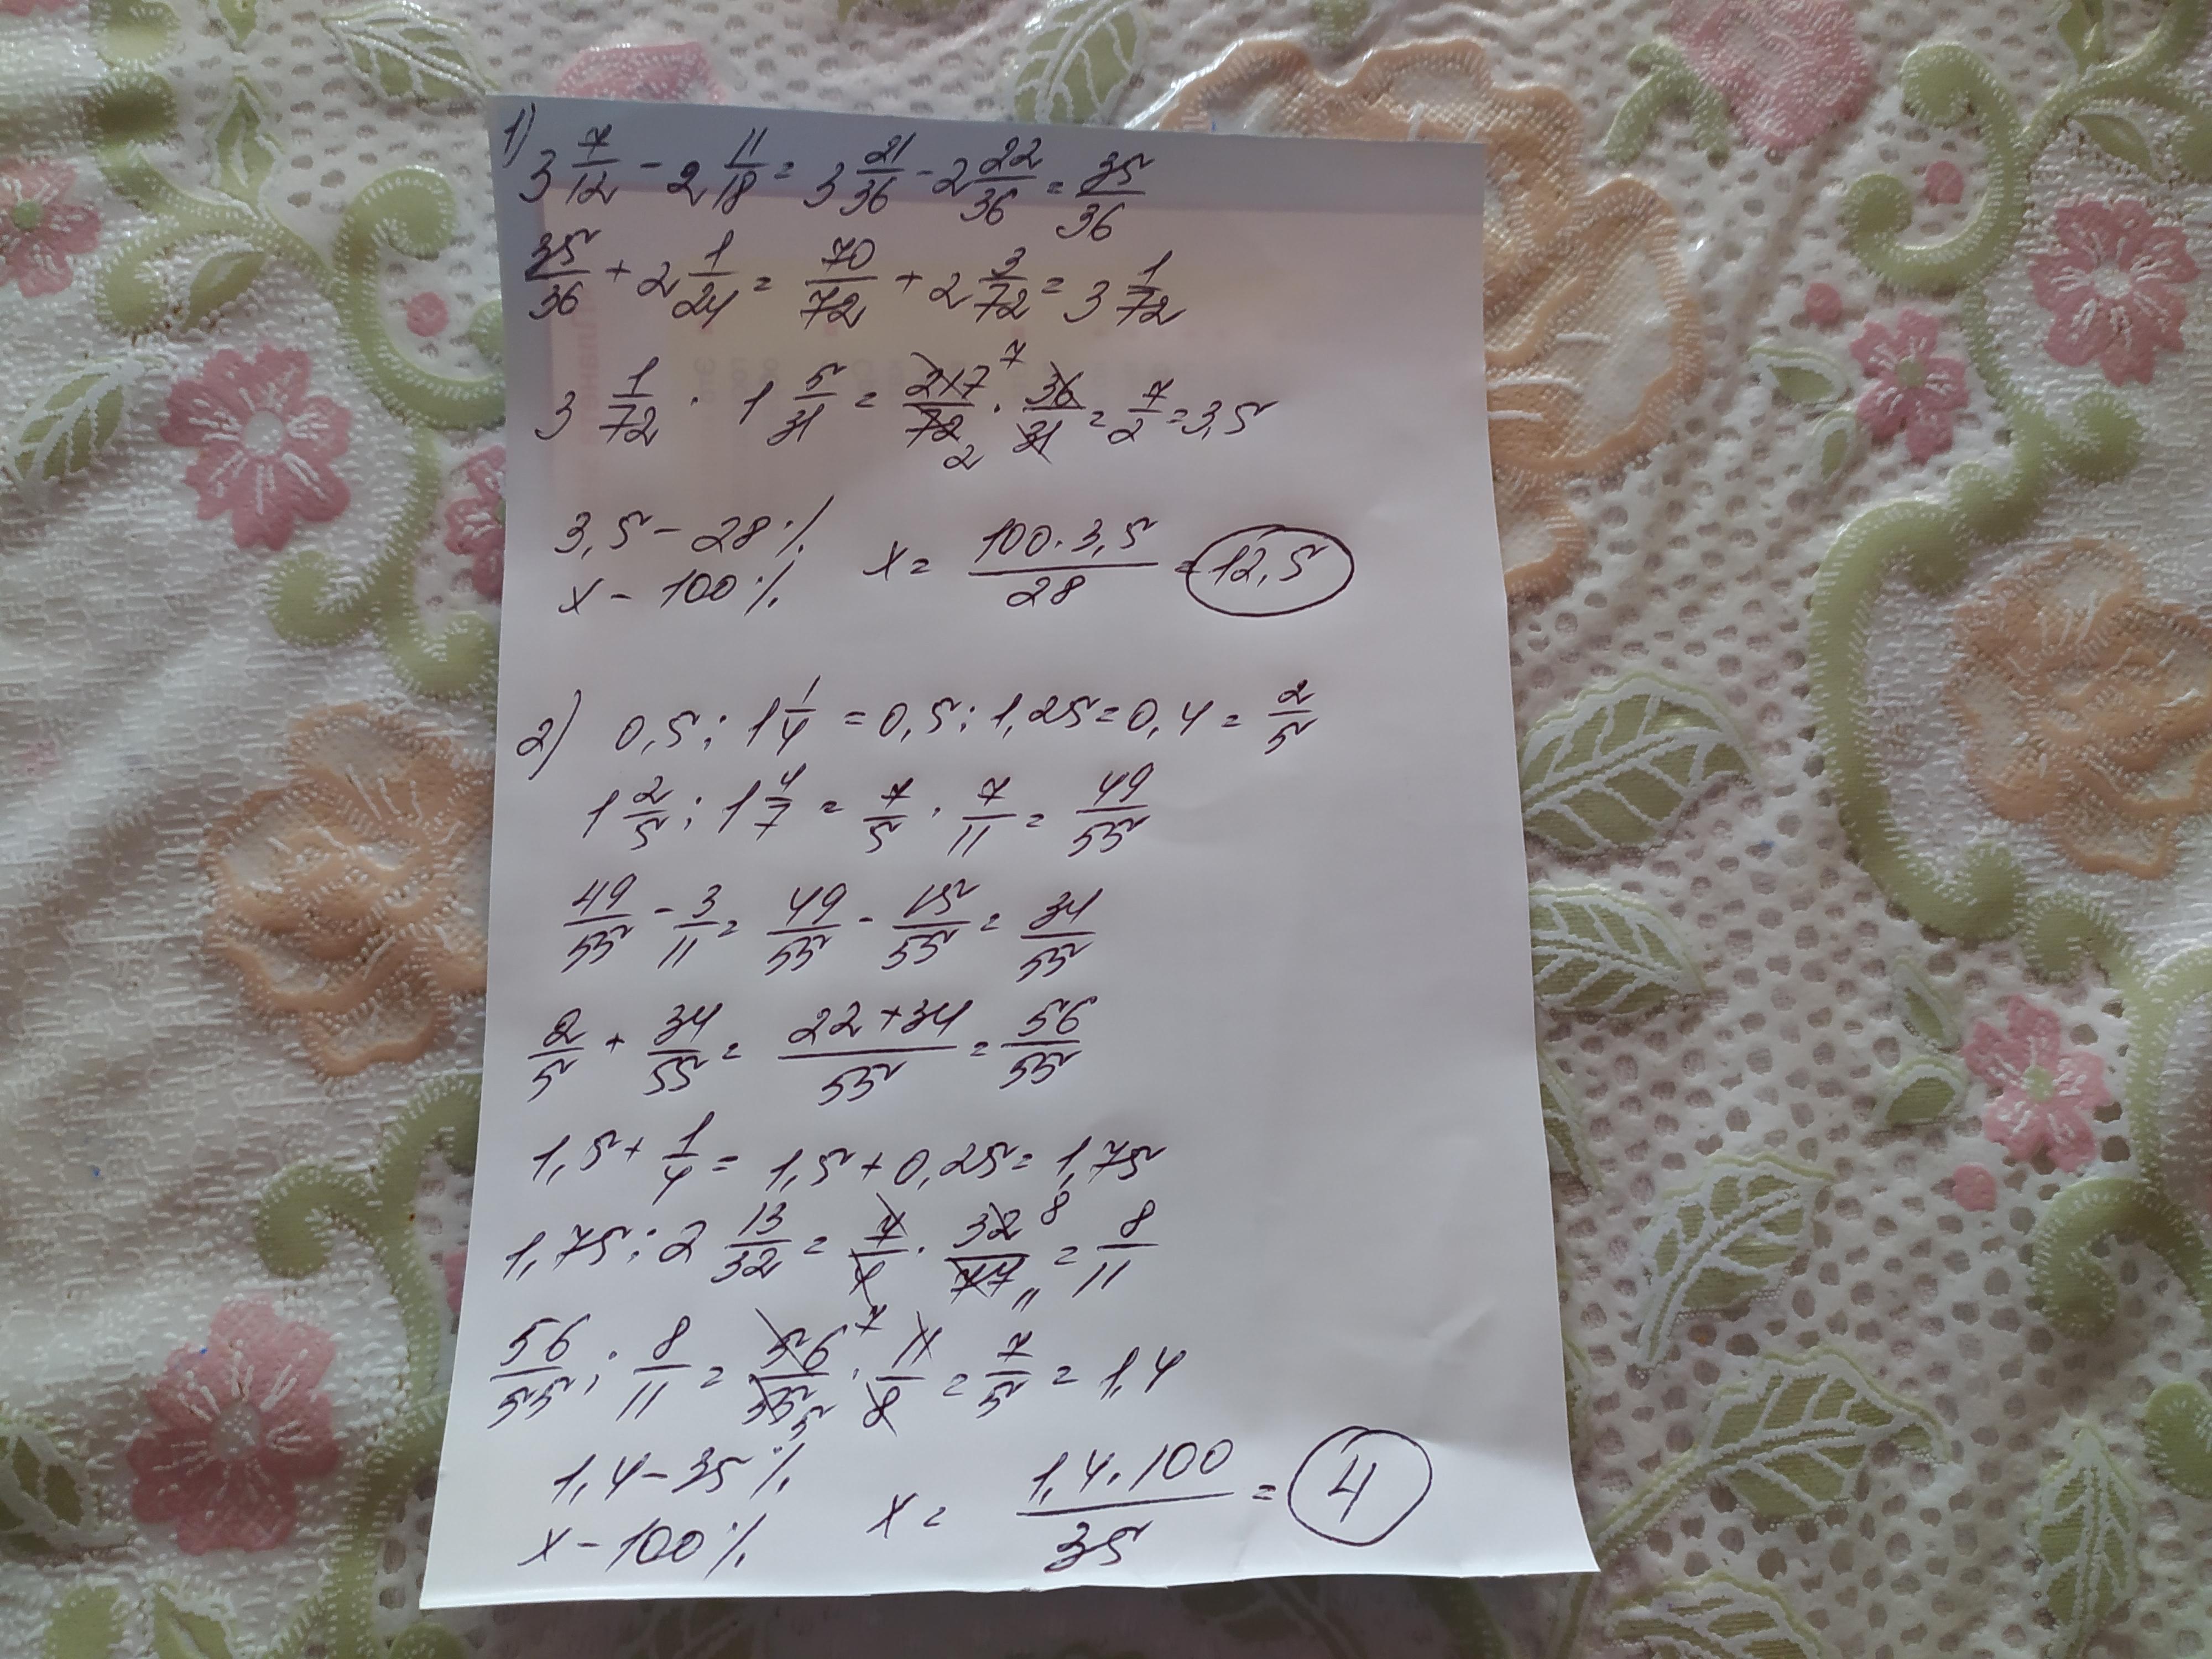 1) 3 7/12 - 2 11/18 = 3 21/36 - 2 22/36 = 35/36
35/36 + 2 1/24 = 70/72 + 2 3/72 = 3 1/72
3 1/72 · 1 5/31 = 217/72 · 36/31 = 7/2 = 3,5
7
2
3,5 - 28%
x - 100%
x = 100·3,5/28 = 12,5
2) 0,5 : 1 1/4 = 0,5 : 1,25 = 0,4 = 2/5
1 2/5 : 1 4/7 = 7/5 · 7/11 = 49/55
49/55 - 3/11 = 49/55 - 15/55 = 34/55
2/5 + 34/55 = 22+34/55 = 56/55
1,5 + 1/4 = 1,5 + 0,25 = 1,75
1,75 : 2 13/32 = 7/4 · 32/77 = 8/11
8
11
56/55 : 8/11 = 56/55 · 11/8 = 7/5 = 1,4
7
5
1,4 - 35%
x - 100%
x = 1,4·100/35 = 4